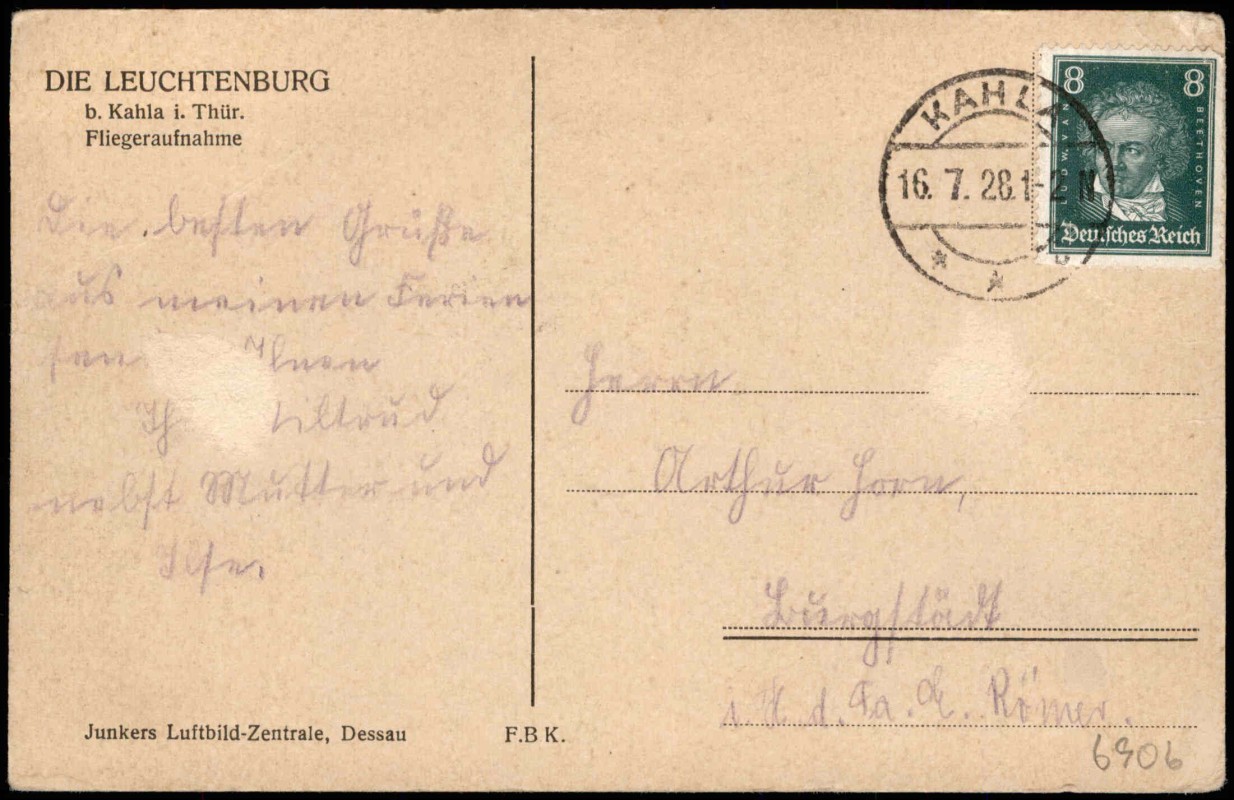 DIE LEUCHTENBURG
b. Kahla i. Thür.
Fliegeraufnahme
Die besten Grüße
aus meinen Ferien
Ihnen
nebst Mutter und
Ilse.
Junkers Luftbild-Zentrale, Dessau
F.B K.
KAHLA
16. 7. 28. 1-2 N
8 8
LUDWIG VAN
BEETHOVEN
Deutsches Reich
Herrn
Arthur Horn,
Burgstädt
d. Fa. Römer.
6906